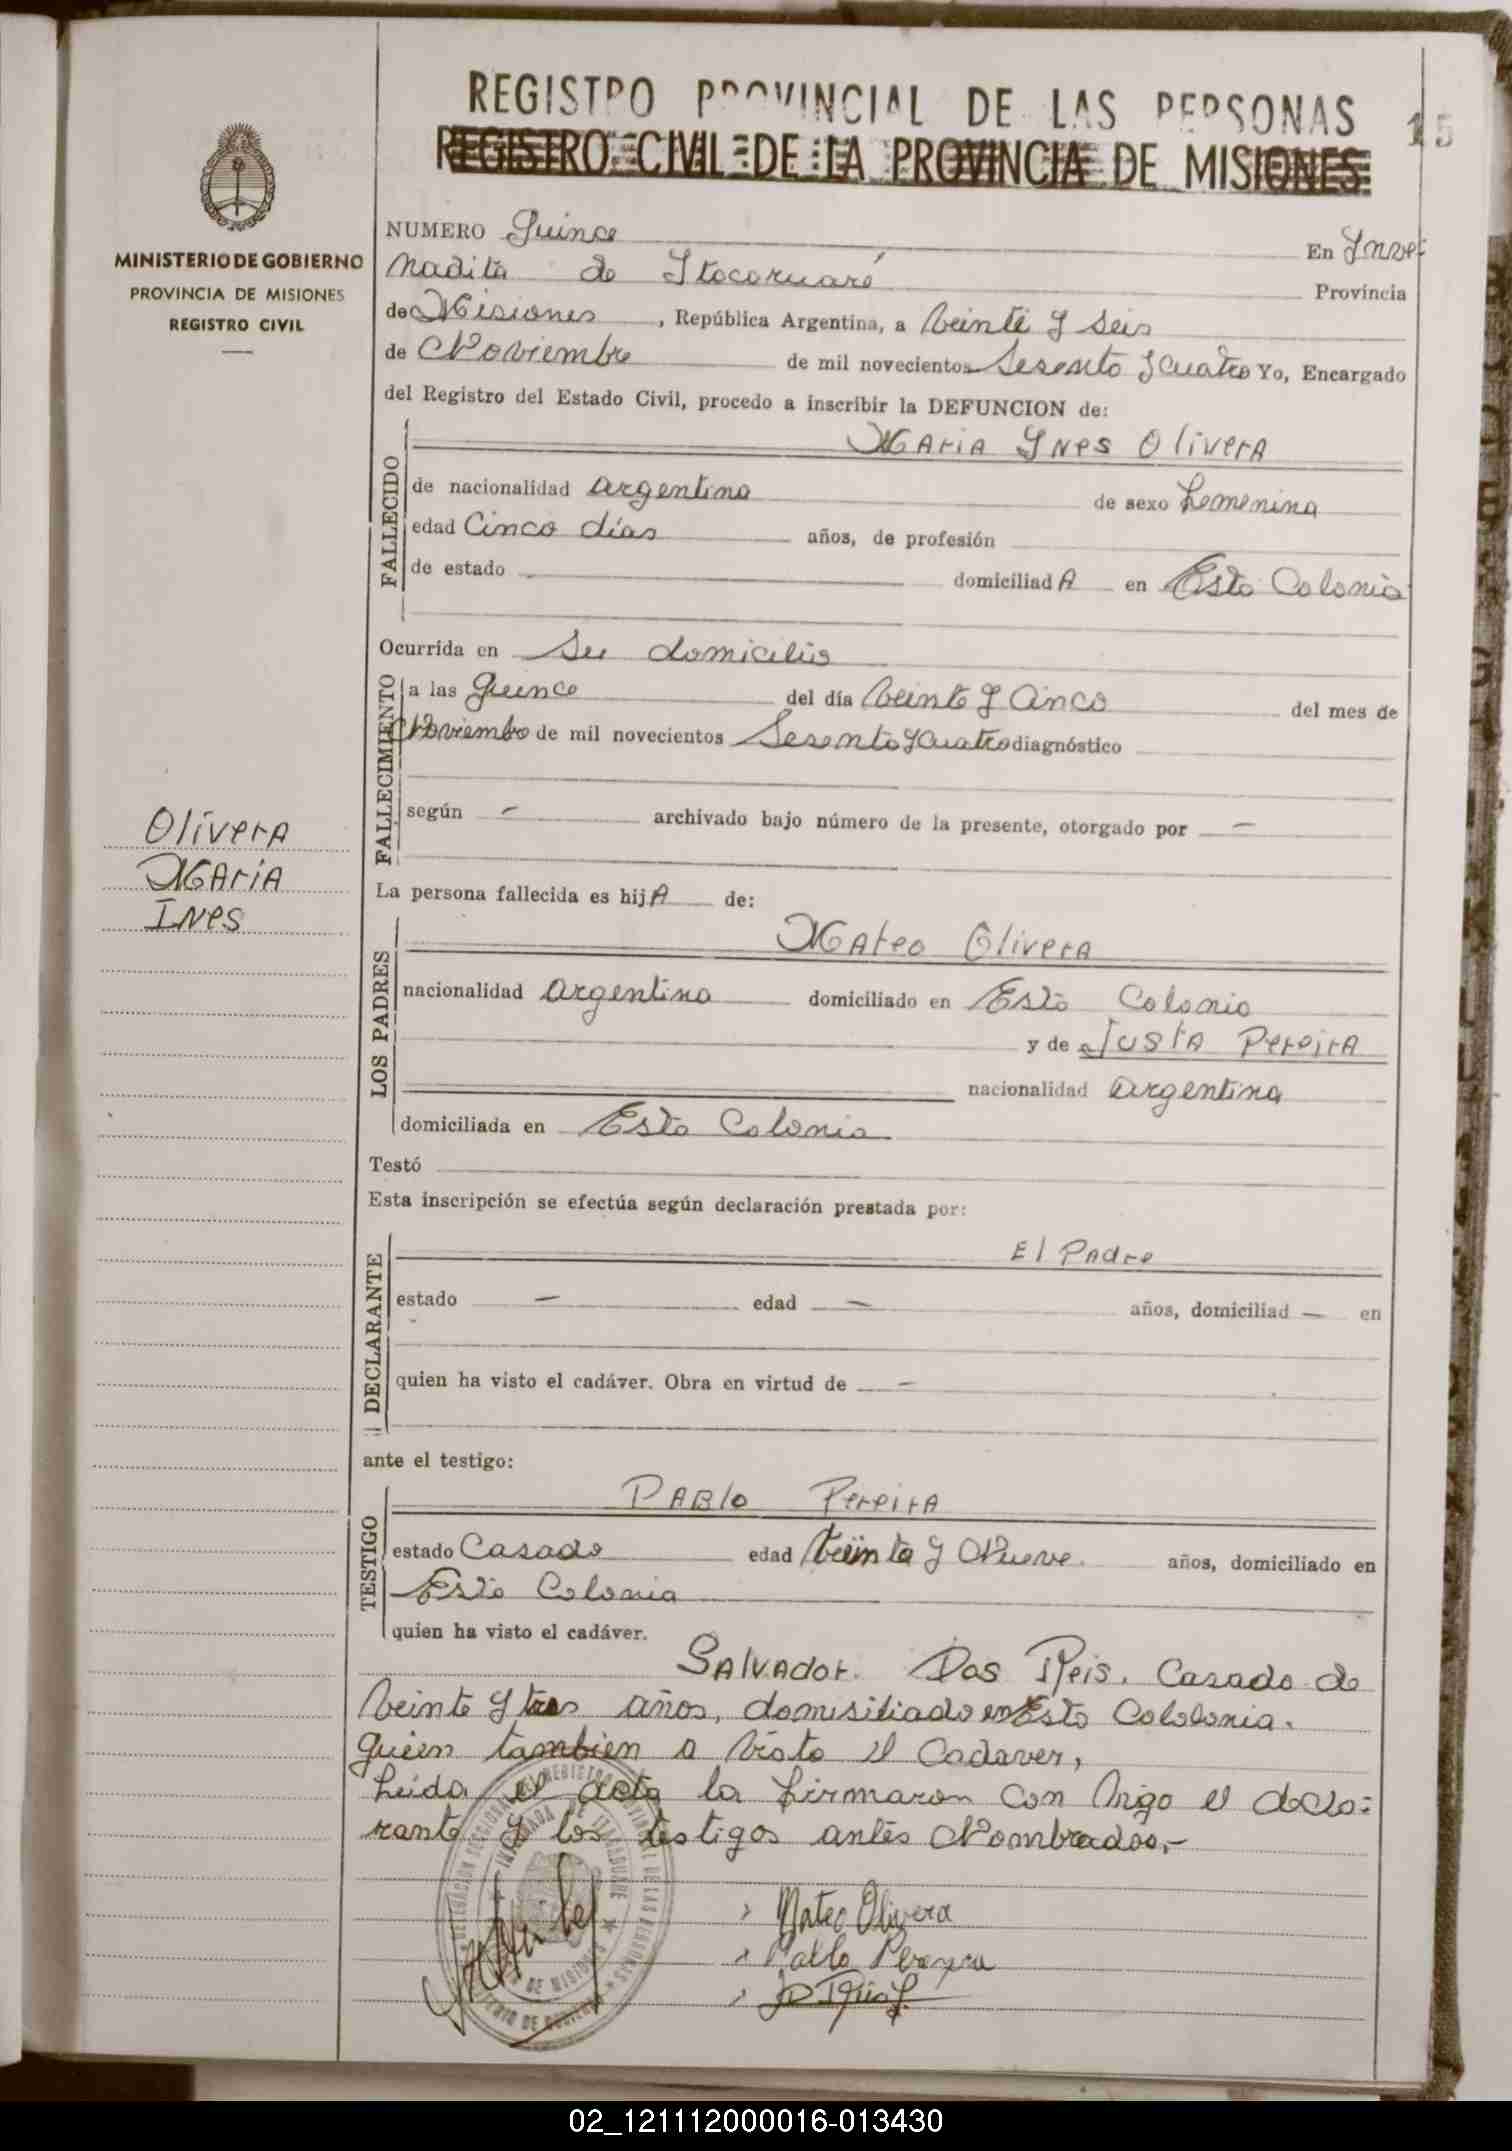 REGISTRO PROVINCIAL DE LAS PERSONAS
15
REGISTRO CIVIL DE LA PROVINCIA DE MISIONES
MINISTERIO DE GOBIERNO
PROVINCIA DE MISIONES
REGISTRO CIVIL
NUMERO Quince En Inver
nadita de Itacaruaré Provincia
de Misiones, República Argentina, a Veinte y seis
de Noviembre de mil novecientos Sesenta y Cuatro Yo, Encargado
del Registro del Estado Civil, procedo a inscribir la DEFUNCION de:
FALLECIDO
MAriA Ynes OliverA
de nacionalidad argentina de sexo femenina
edad Cinco días años, de profesión
de estado domiciliadA en Esta Colonia
Ocurrida en Su domicilio
FALLECIMIENTO
a las quince del día Veinte y Cinco del mes de
Noviembre de mil novecientos Sesenta y Cuatro diagnóstico
según - archivado bajo número de la presente, otorgado por -
OliverA
MAriA
INes
La persona fallecida es hijA de:
LOS PADRES
MAteo OliverA
nacionalidad argentina domiciliado en Esta Colonia
y de JustA PereirA
nacionalidad argentina
domiciliada en Esta Colonia
Testó
Esta inscripción se efectúa según declaración prestada por:
DECLARANTE
El PAdre
estado - edad - años, domiciliad - en
quien ha visto el cadáver. Obra en virtud de -
ante el testigo:
TESTIGO
PABlo PereirA
estado Casado edad Treinta y Nueve años, domiciliado en
Esta Colonia
quien ha visto el cadáver.
SAlvAdor. Dos Reis. Casado de
Veinte y tres años, domisiliado en Esta Cololonia.
quien tambien a visto el Cadaver,
Leida el acta la firmaron con migo el decla=
rante y los testigos antes Nombrados.-
Mateo Olivera
Pablo Pereyra
02_121112000016-013430